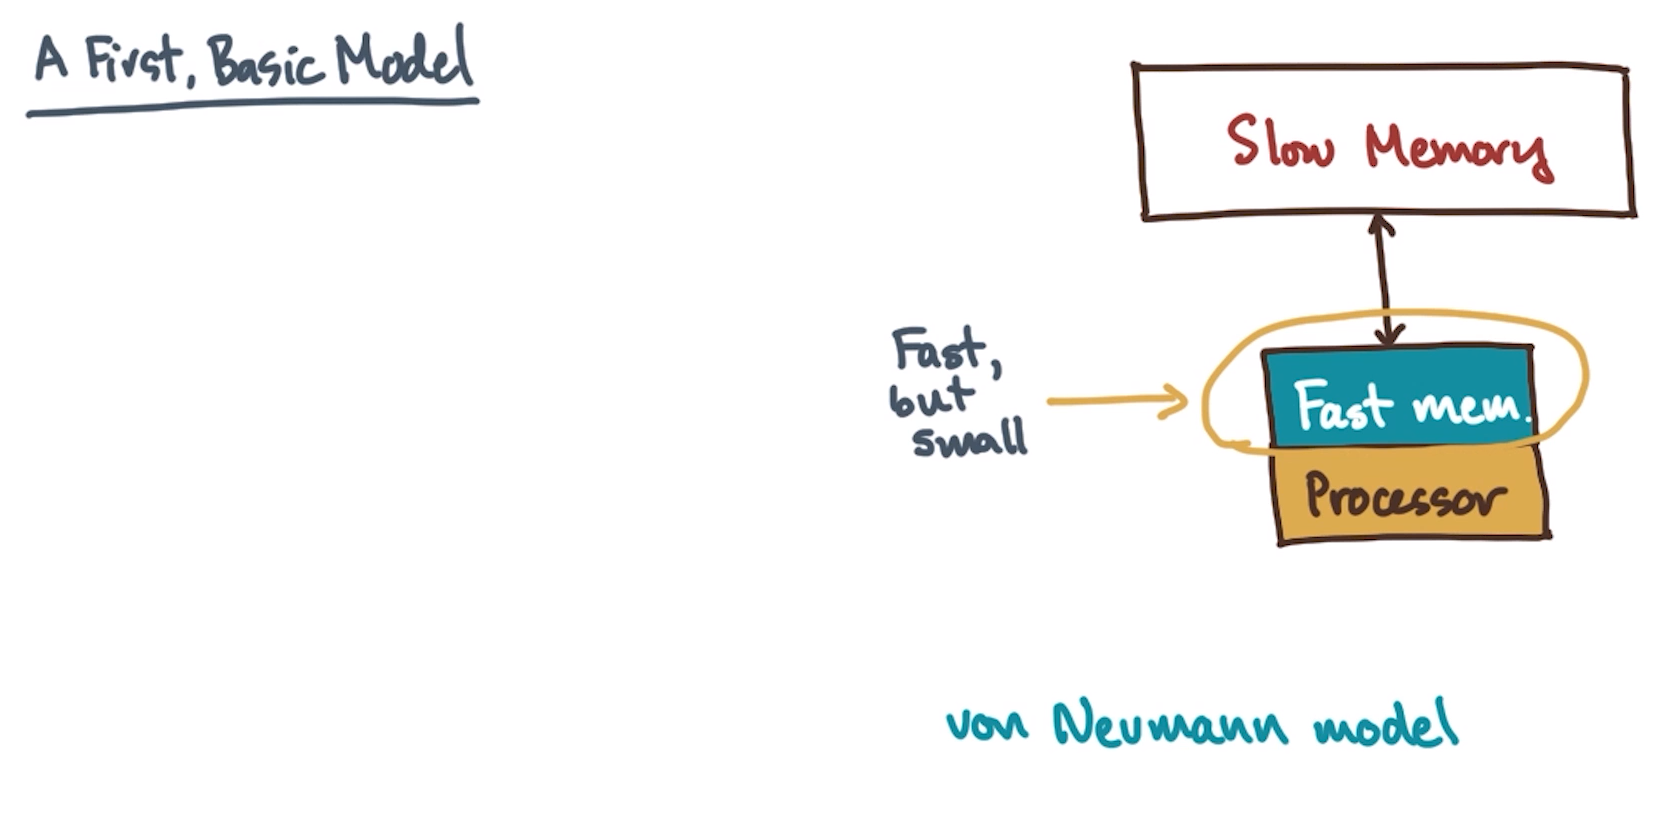 A First, Basic Model
Slow Memory
Fast,
but
small
Fast mem.
Processor
von Neumann model